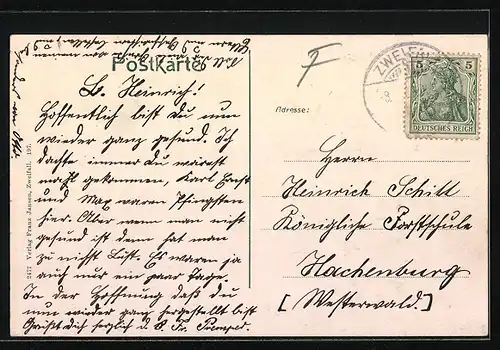 Postkarte
L. Heinrich!
Hoffentlich bist du nun
wieder ganz gesund. Ich
dachte immer du wärest
mahl gekommen, Karl Ernst
und Max waren Pfingsten
hier. Aber wenn man nicht
gesund ist dann hat man
zu nichts Lust. Es waren ja
auch nur ein paar Tage.
In der Hoffnung daß du
nun wieder ganz hergestellt bist
Grüßt dich herzlich d. O. Fr.
2477 Verlag Franz Jansen, Zweifall. 190.
F
ZWEIFALL
5 5
DEUTSCHES REICH
Adresse:
Herrn
Heinrich Schill
Königliche Forstschule
Hachenburg
[Westerwald.]